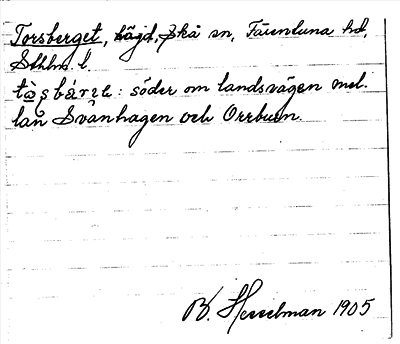 Torsberget, höjd, Skå sn, Färentuna hd,
Sthlms l.
söder om landsvägen mel-
lan Svanhagen och Orrburn.
B. Hesselman 1905